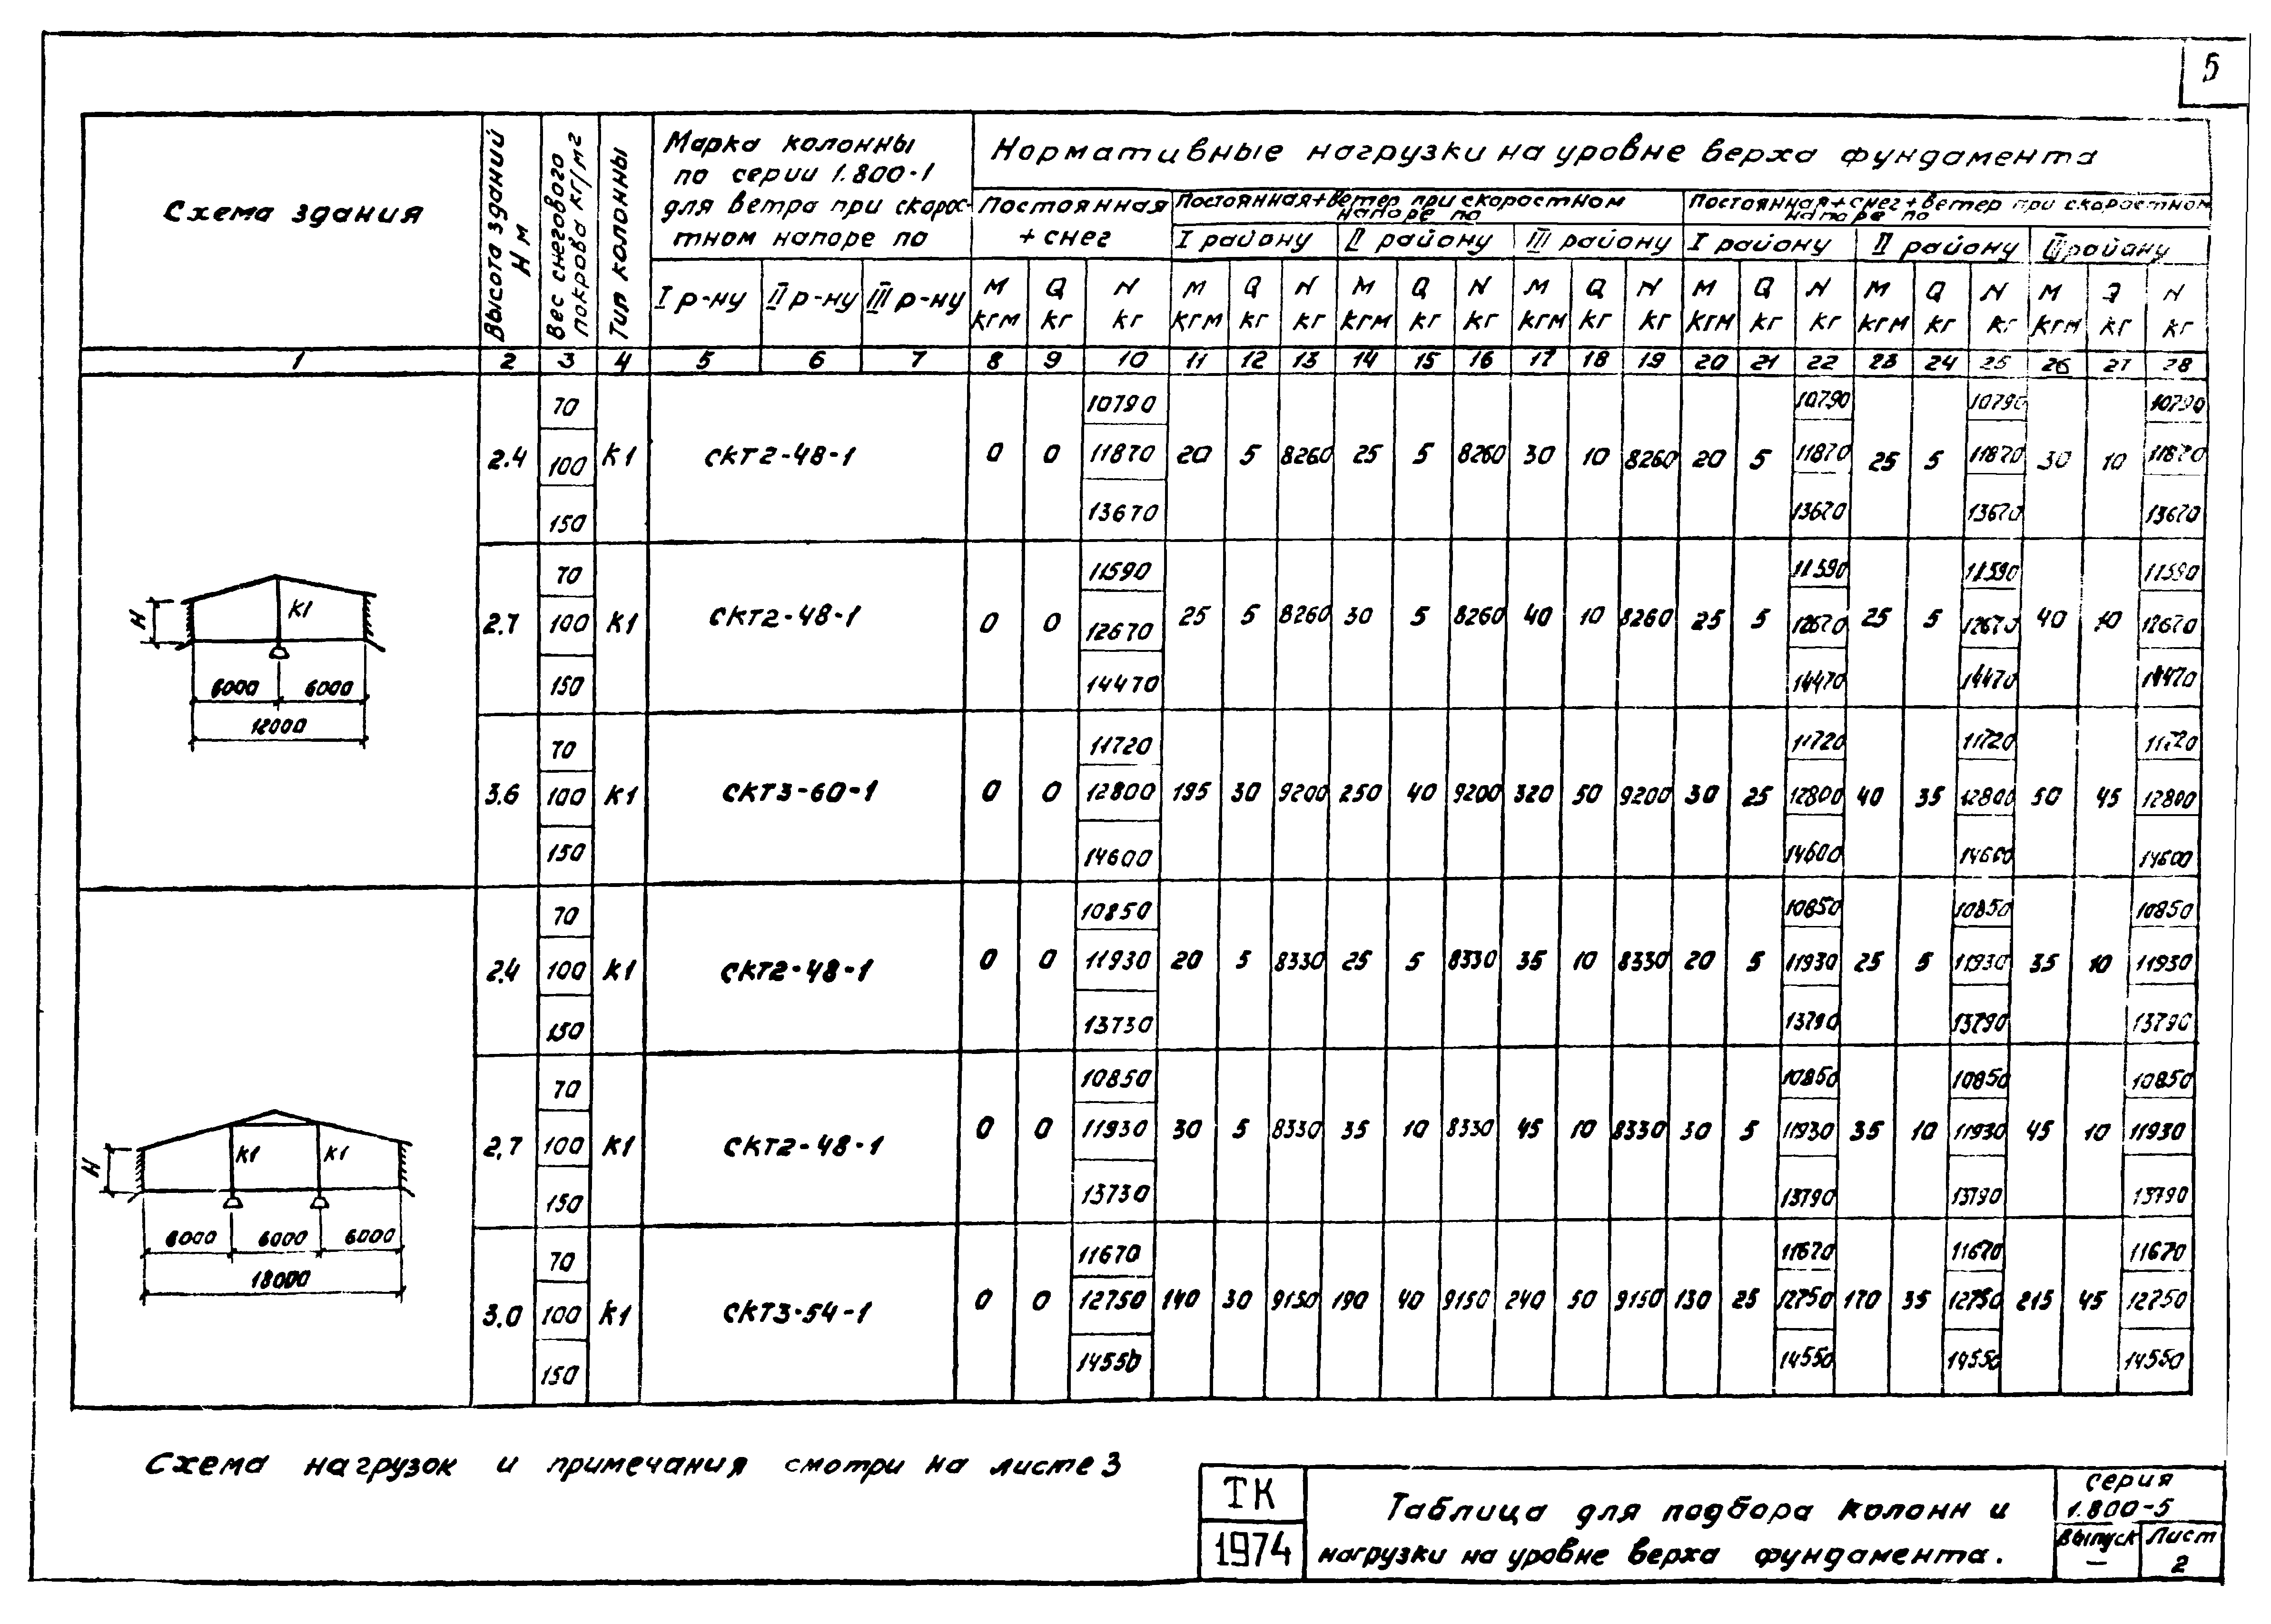 5
Схема здания
Высота зданий
Н м
Вес снегового
покрова кг/м2
Тип колонны
Марка колонны
по серии 1.800-1
для ветра при скорос-
тном напоре по
I р-ну II р-ну III р-ну
Нормативные нагрузки на уровне верха фундамента
Постоянная
+ снег
Постоянная+ветер при скоростном
напоре по
I району II району III району
Постоянная+снег+ветер при скоростном
напоре по
I району II району III району
M Q N M Q N M Q N M Q N M Q N M Q N M Q N
кгм кг кг кгм кг кг кгм кг кг кгм кг кг кгм кг кг кгм кг кг кгм кг кг
1 2 3 4 5 6 7 8 9 10 11 12 13 14 15 16 17 18 19 20 21 22 23 24 25 26 27 28
70 10790 10790 10790 10790
2.4 100 К1 СКТ2-48-1 0 0 11870 20 5 8260 25 5 8260 30 10 8260 20 5 11870 25 5 11870 30 10 11870
150 13670 13670 13670 13670
70 11590 11590 11590 11590
2.7 100 К1 СКТ2-48-1 0 0 12670 25 5 8260 30 5 8260 40 10 8260 25 5 12670 25 5 12670 40 10 12670
150 14470 14470 14470 14470
70 11720 11720 11720 11720
3.6 100 К1 СКТ3-60-1 0 0 12800 195 30 9200 250 40 9200 320 50 9200 30 25 12800 40 35 12800 50 45 12800
150 14600 14600 14600 14600
Н К1
6000 6000
12000
70 10850 10850 10850 10850
2.4 100 К1 СКТ2-48-1 0 0 11930 20 5 8330 25 5 8330 35 10 8330 20 5 11930 25 5 11930 35 10 11930
150 13730 13790 13790 13790
70 10850 10850 10850 10850
2,7 100 К1 СКТ2-48-1 0 0 11930 30 5 8330 35 10 8330 45 10 8330 30 5 11930 35 10 11930 45 10 11930
150 13730 13790 13790 13790
70 11670 11670 11670 11670
3.0 100 К1 СКТ3-54-1 0 0 12750 140 30 9150 190 40 9150 240 50 9150 130 25 12750 170 35 12750 215 45 12750
150 14550 14550 14550 14550
Н К1 К1
6000 6000 6000
18000
Схема нагрузок и примечания смотри на листе 3
ТК
1974
Таблица для подбора колонн и
нагрузки на уровне верха фундамента.
серия
1.800-5
Выпуск
—
Лист
2